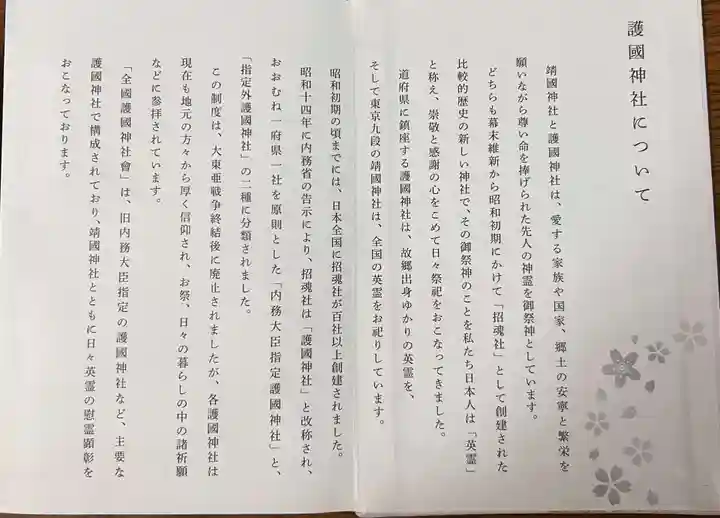 護國神社について
靖國神社と護國神社は、愛する家族や国家、郷土の安寧と繁栄を
願いながら尊い命を捧げられた先人の神霊を御祭神としています。
どちらも幕末維新から昭和初期にかけて「招魂社」として創建された
比較的歴史の新しい神社で、その御祭神のことを私たち日本人は「英霊」
と称え、崇敬と感謝の心をこめて日々祭祀をおこなってきました。
道府県に鎮座する護國神社は、故郷出身ゆかりの英霊を、
そして東京九段の靖國神社は、全国の英霊をお祀りしています。
昭和初期の頃までには、日本全国に招魂社が百社以上創建されました。
昭和十四年に内務省の告示により、招魂社は「護國神社」と改称され、
おおむね一府県一社を原則とした「内務大臣指定護國神社」と、
「指定外護國神社」の二種に分類されました。
この制度は、大東亜戦争終結後に廃止されましたが、各護國神社は
現在も地元の方々から厚く信仰され、お祭、日々の暮らしの中の諸祈願
などに参拝されています。
「全國護國神社會」は、旧内務大臣指定の護國神社など、主要な
護國神社で構成されており、靖國神社とともに日々英霊の慰霊顕彰を
おこなっております。